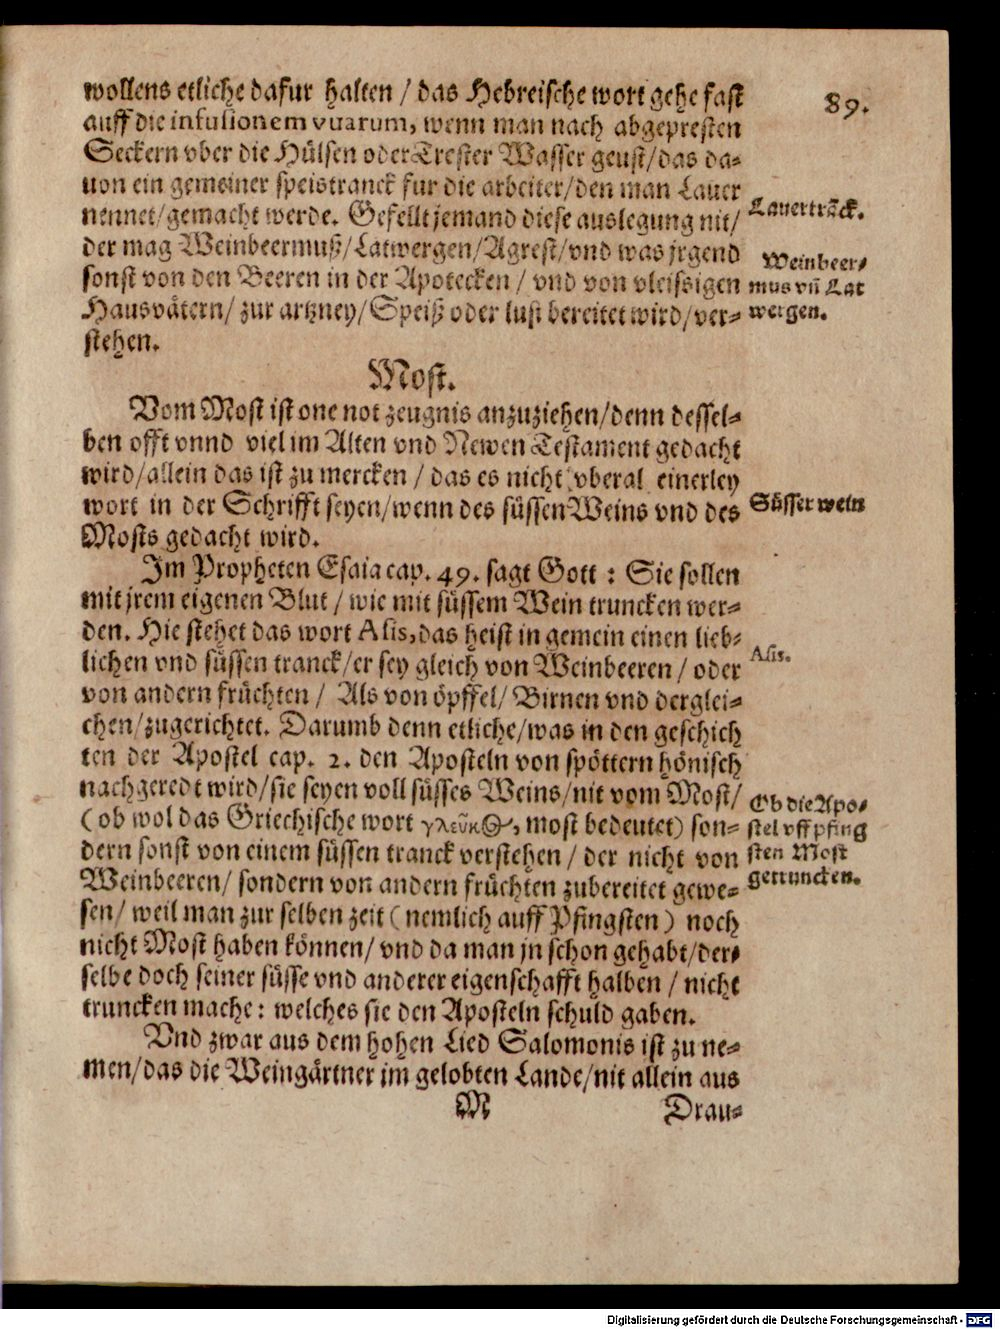 89.
wollens etliche dafur halten / das Hebreische wort gehe fast
auff die infusionem vuarum, wenn man nach abgepresten
Seckern vber die Hülsen oder Trester Wasser geust/das da-
uon ein gemeiner speistranck fur die arbeiter/den man Lauer
nennet/gemacht werde. Gefellt jemand diese auslegung nit/
Lauertrãck.
der mag Weinbeermuß/Latwergen/Agrest/vnd was jrgend
sonst von den Beeren in der Apotecken / vnd von vleissigen
Hausvätern/ zur artzney/Speiß oder lust bereitet wird/ver-
stehen.
Weinbeer-
mus vñ Lat
wergen.
Most.
Vom Most ist one not zeugnis anzuziehen/denn dessel-
ben offt vnnd viel im Alten vnd Newen Testament gedacht
wird/allein das ist zu mercken / das es nicht vberal einerley
wort in der Schrifft seyen/wenn des süssen Weins vnd des
Mosts gedacht wird.
Süsser wein
Im Propheten Esaia cap. 49. sagt Gott : Sie sollen
mit jrem eigenen Blut / wie mit süssem Wein truncken wer-
den. Hie stehet das wort Asis, das heist in gemein einen lieb-
lichen vnd süssen tranck/er sey gleich von Weinbeeren / oder
Asis.
von andern früchten / Als von öpffel/ Birnen vnd derglei-
chen/zugerichtet. Darumb denn etliche/was in den geschich
ten der Apostel cap. 2. den Aposteln von spöttern hönisch
nachgeredt wird/sie seyen voll süsses Weins/nit vom Most/
(ob wol das Griechische wort γλεῦκος, most bedeutet) son-
dern sonst von einem süssen tranck verstehen / der nicht von
Weinbeeren/ sondern von andern früchten zubereitet gewe-
Ob die Apo-
stel vff pfing
sten Most
getruncken.
sen/ weil man zur selben zeit (nemlich auff Pfingsten) noch
nicht Most haben können/ vnd da man jn schon gehabt/der-
selbe doch seiner süsse vnd anderer eigenschafft halben / nicht
truncken mache : welches sie den Aposteln schuld gaben.
Vnd zwar aus dem hohen Lied Salomonis ist zu ne-
men/das die Weingärtner im gelobten Lande/nit allein aus
M
Drau-
Digitalisierung gefördert durch die Deutsche Forschungsgemeinschaft - DFG